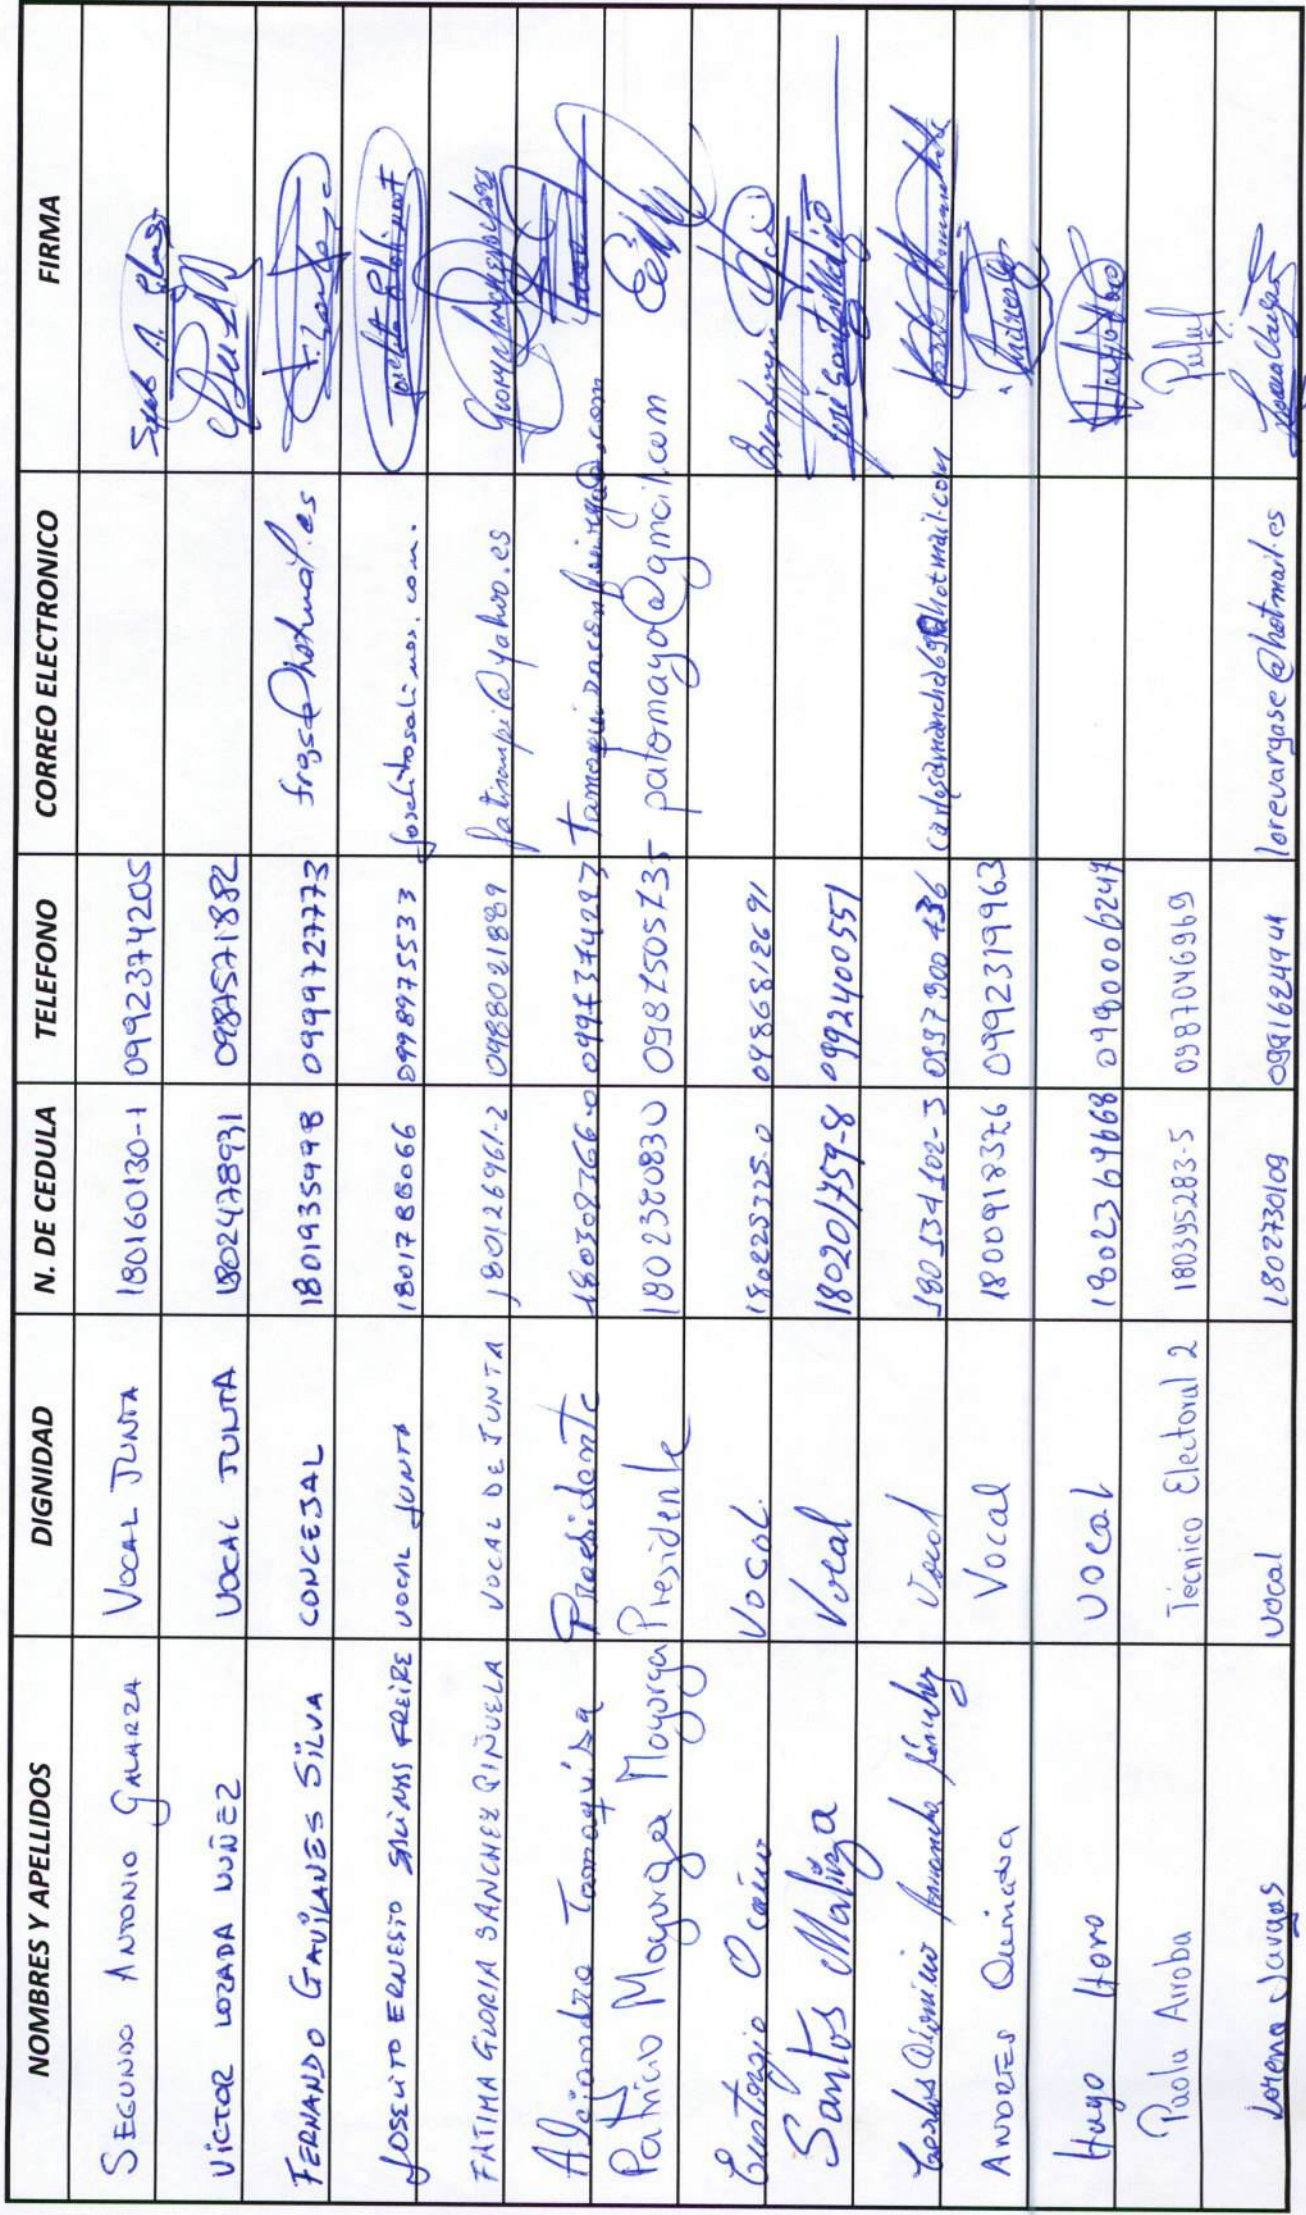 NOMBRES Y APELLIDOS DIGNIDAD N. DE CEDULA TELEFONO CORREO ELECTRONICO FIRMA
SEGUNDO ANTONIO GALARZA VOCAL JUNTA 180160130-1 0992374205
VICTOR LOZADA NUÑEZ VOCAL JUNTA 1802478931 0987571882
FERNANDO GAVILANES SILVA CONCEJAL 1801935998 0999727773
JOSELITO ERNESTO SALINAS FREIRE VOCAL JUNTA 1801788066 0998975533 joselitosalinas.com.
FATIMA GLORIA SANCHEZ PIÑUELA VOCAL DE JUNTA 180126961-2 0988021889 fatisanpi@yahoo.es
Alejandro Tamaquiza Presidente 180308766-0
Patricio Mayorga Mayorga Presidente 1802380830 patomayo@gmail.com
Eustorgio Ocaña Vocal. 180225325-0 0986812691
Santos Maliza Vocal 180201759-8 0992400551 José Santos Maliza
Carlos Sánchez Vocal 180534102-3 0997900436
ANDRES Quinatoa Vocal 1800918376 0992319963
Hugo Haro vocal 1802364668 0980006247
Paola Arroba Técnico Electoral 2 180395283-5 0987046969
Lorena Vargas vocal 1802730109 0991624944 lorevargase@hotmail.es Lorena Vargas